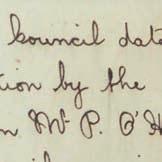 kouncil date
tion by the
n Mr P. O'H